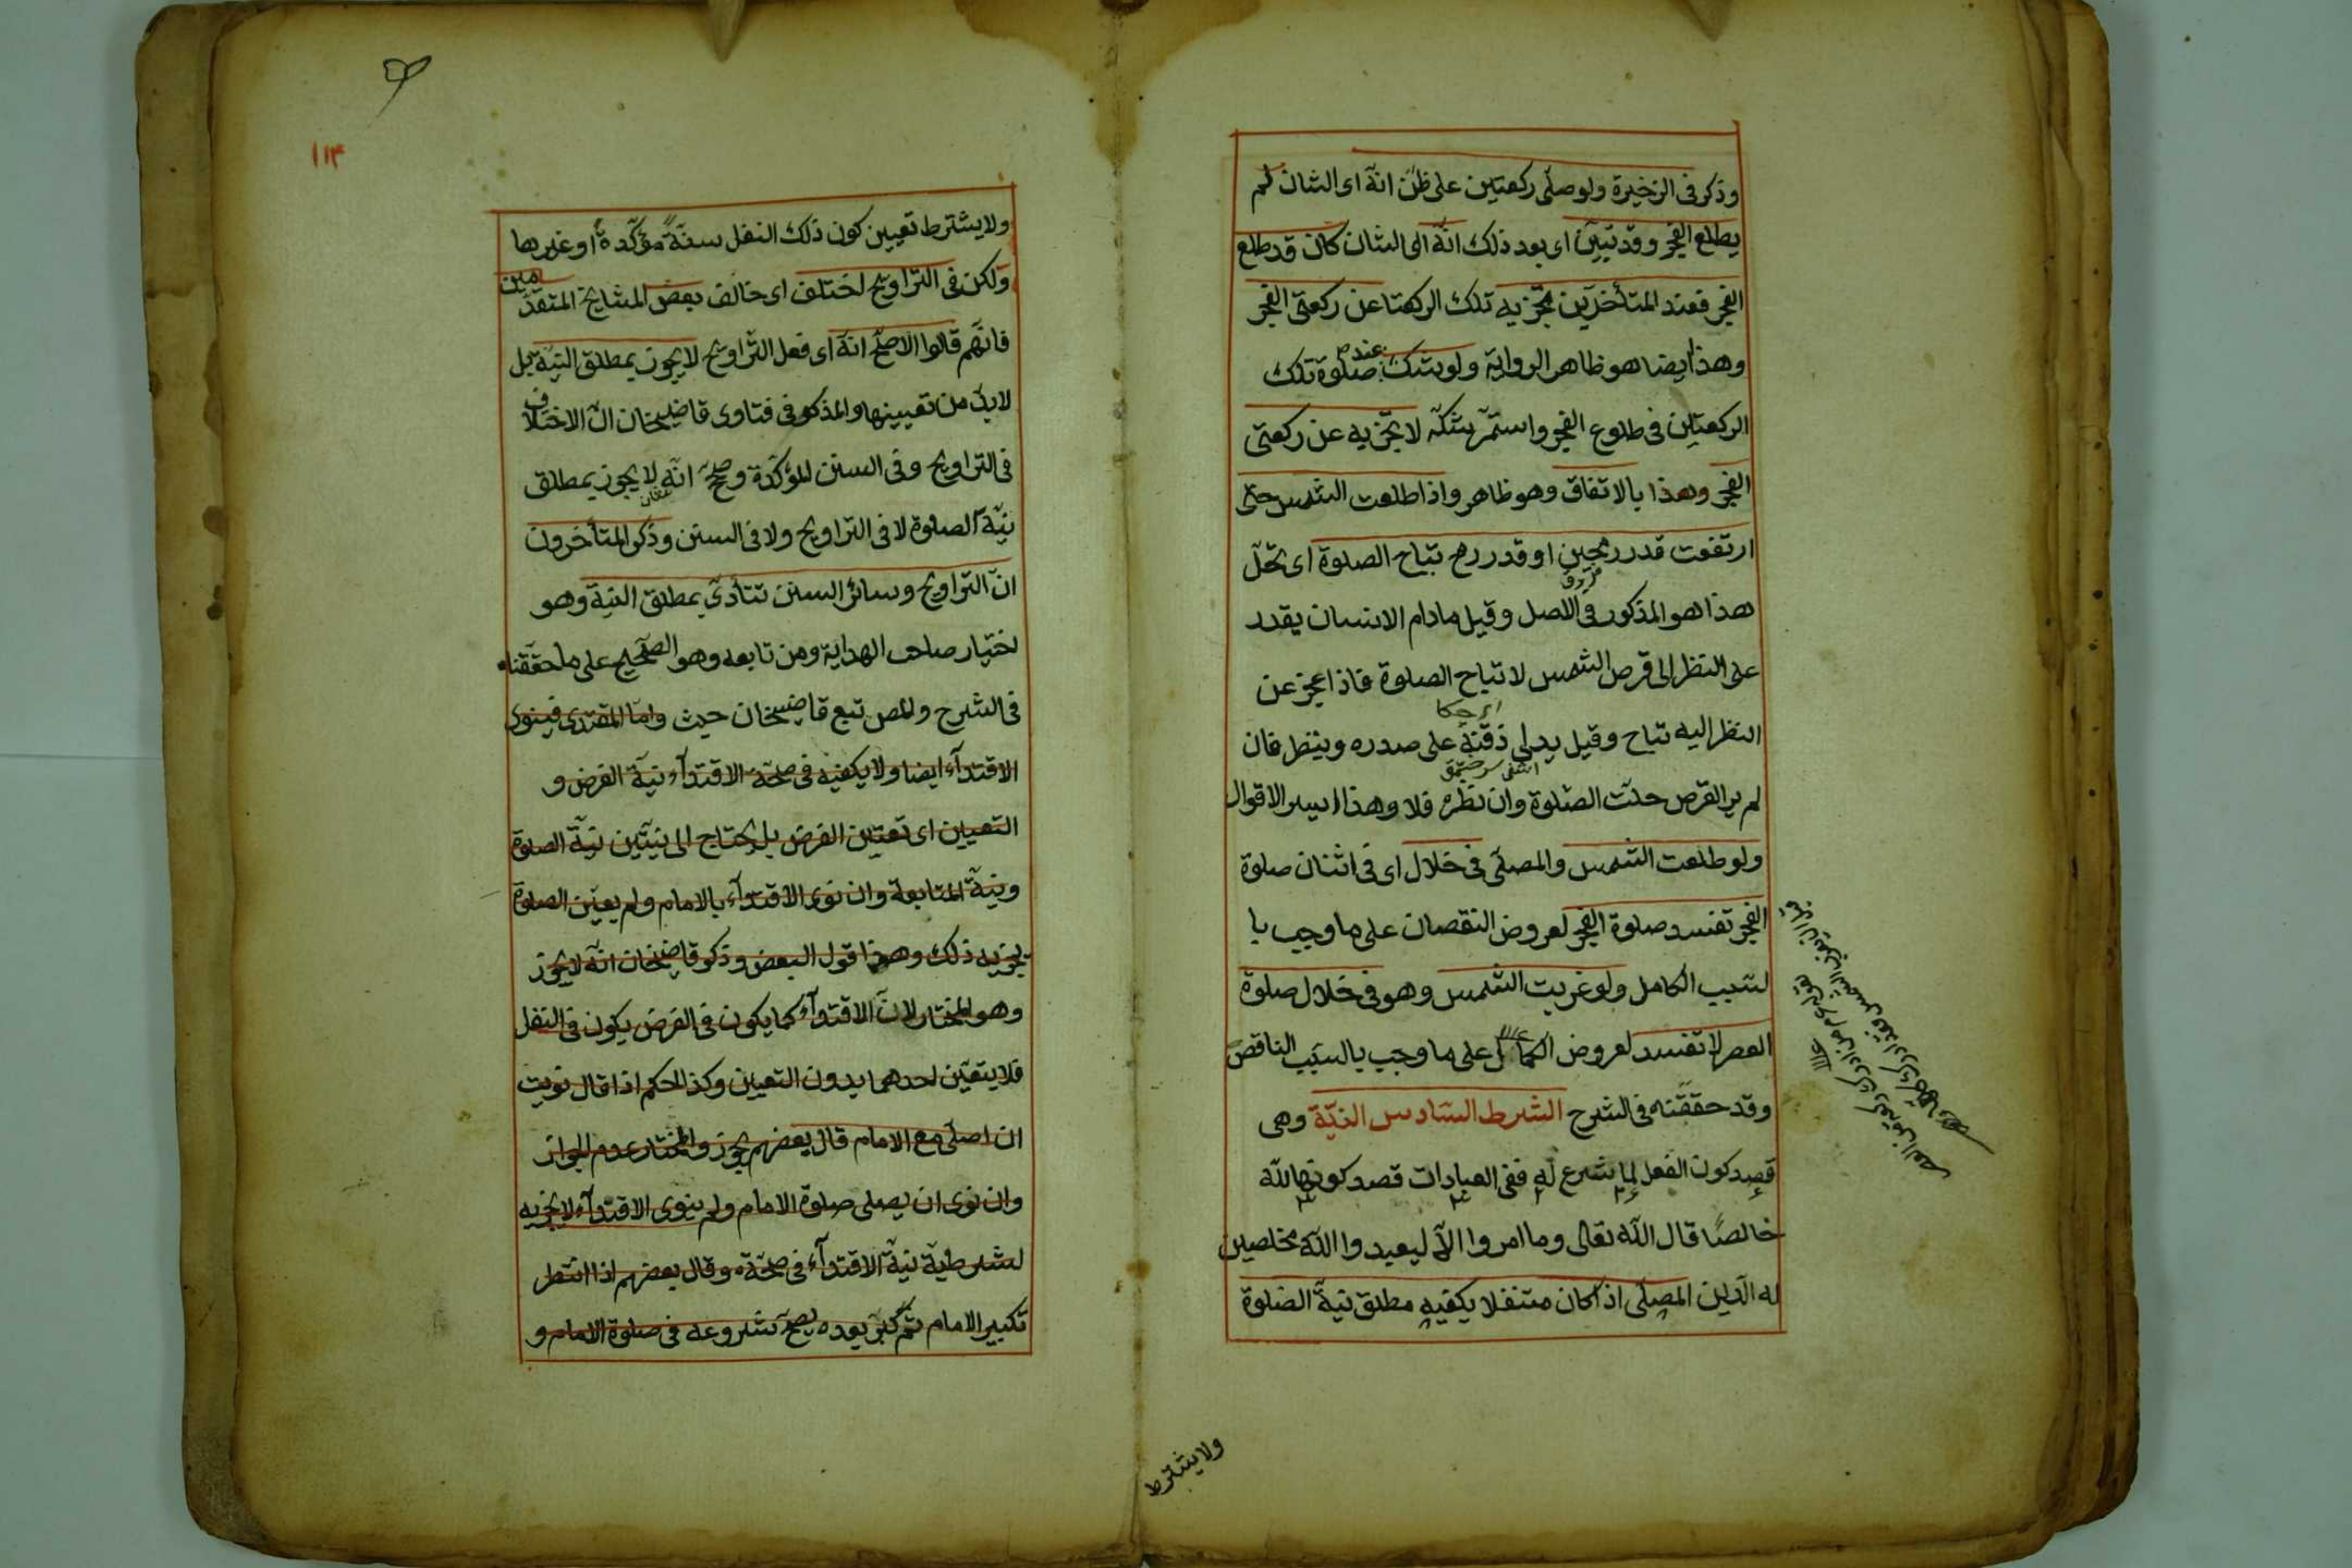 وذكر فى الذخيرة ولو صلّى ركعتين على ظنّ انّه اى الشان لم
يطلع الفجر وقد تبيّن اى بعد ذلك انّه الى الشان كان قد طلع
الفجر فعند المتأخّرين تجزيه تلك الركعتا عن ركعتى الفجر
وهذا ايضا هو ظاهر الرواية ولو شك عند صلوة تلك
الركعتين فى طلوع الفجر واستمرّ شكّه لا تجزيه عن ركعتى
الفجر وهذا بالاتفاق وهو ظاهر واذا طلعت الشمس حتى
ارتفعت قدر رمحين او قدر رمح تباح الصلوة اى تحلّ
هذا هو المذكور فى الاصل وقيل ما دام الانسان يقدر
على النظر الى قرص الشمس لا تباح الصلوة فاذا عجز عن
النظر اليه تباح وقيل يدلى ذقنه على صدره وينظر فان
لم ير القرص حلّت الصّلوة وان نظره فلا وهذا ايسر الاقوال
ولو طلعت الشمس والمصلّى فى خلال اى فى اثنان صلوة
الفجر تفسد صلوة الفجر لعروض النقصان على ما وجب با
لسّبب الكامل ولو غربت الشّمس وهو فى خلال صلوة
العصر لا تفسد لعروض الكمال على ما وجب بالسّبب الناقص
وقد حققناه فى الشرح الشرط السّادس النيّة وهى
قصد كون الفعل لما شرع له ففى العبادات قصد كونها لله
خالصًا قال اللّه تعالى وما امروا الّا ليعبدوا اللّه مخلصين
له الدّين المصلّى اذا كان متنفلا يكفيه مطلق نيّة الصّلوة
ولا يشترط
١١٣
ولا يشترط تعيين كون ذلك النفل سنّةً مؤكّدةً او غيرها
ولكن فى التراويح اختلف اى خالف بعض المشايخ المتقدّمين
فانّهم قالوا الاصحّ انّه اى فعل التّراويح لا يجوز بمطلق النيّة بل
لا بدّ من تعيينها والمذكور فى فتاوى قاضيخان انّ الاختلاف
فى التراويح وفى السنن المؤكّدة وصحّ انّه لا يجوز بمطلق
نيّة الصلوة لا فى التراويح ولا فى السنن وذكر المتأخرون
انّ التراويح وسائر السنن تتأدّى بمطلق النيّة وهو
اختيار صاحب الهداية ومن تابعه وهو الصّحيح على ما حقّقناه
فى الشرح والمص تبع قاضيخان حيث وامّا المقتدى فينوى
الاقتدآء ايضا ولا يكفيه فى صحّة الاقتدآء نيّة الفرض و
التعيين اى تعيّين الفرض بل يحتاج الى نيّتين نيّة الصلوة
ونيّة المتابعة وان نوى الاقتدآء بالامام ولم يعيّن الصلوة
يجزيه ذلك وهذا قول البعض وذكر قاضيخان انّه لا يجوز
وهو المختار لانّ الاقتدآء كما يكون فى الفرض يكون فى النفل
فلا يتعيّن احدهما بدون التعيين وكذا الحكم اذا قال نويت
ان اصلّى مع الامام قال بعضهم يجوز والمختار عدم الجواز
وان نوى ان يصلى صلوة الامام ولم ينوى الاقتدآء لا يجزيه
لشرطيّة نيّة الاقتدآء فى صحّته وقال بعضهم اذا انتظر
تكبير الامام ثم كبّر بعده يصحّ شروعه فى صلوة الامام و